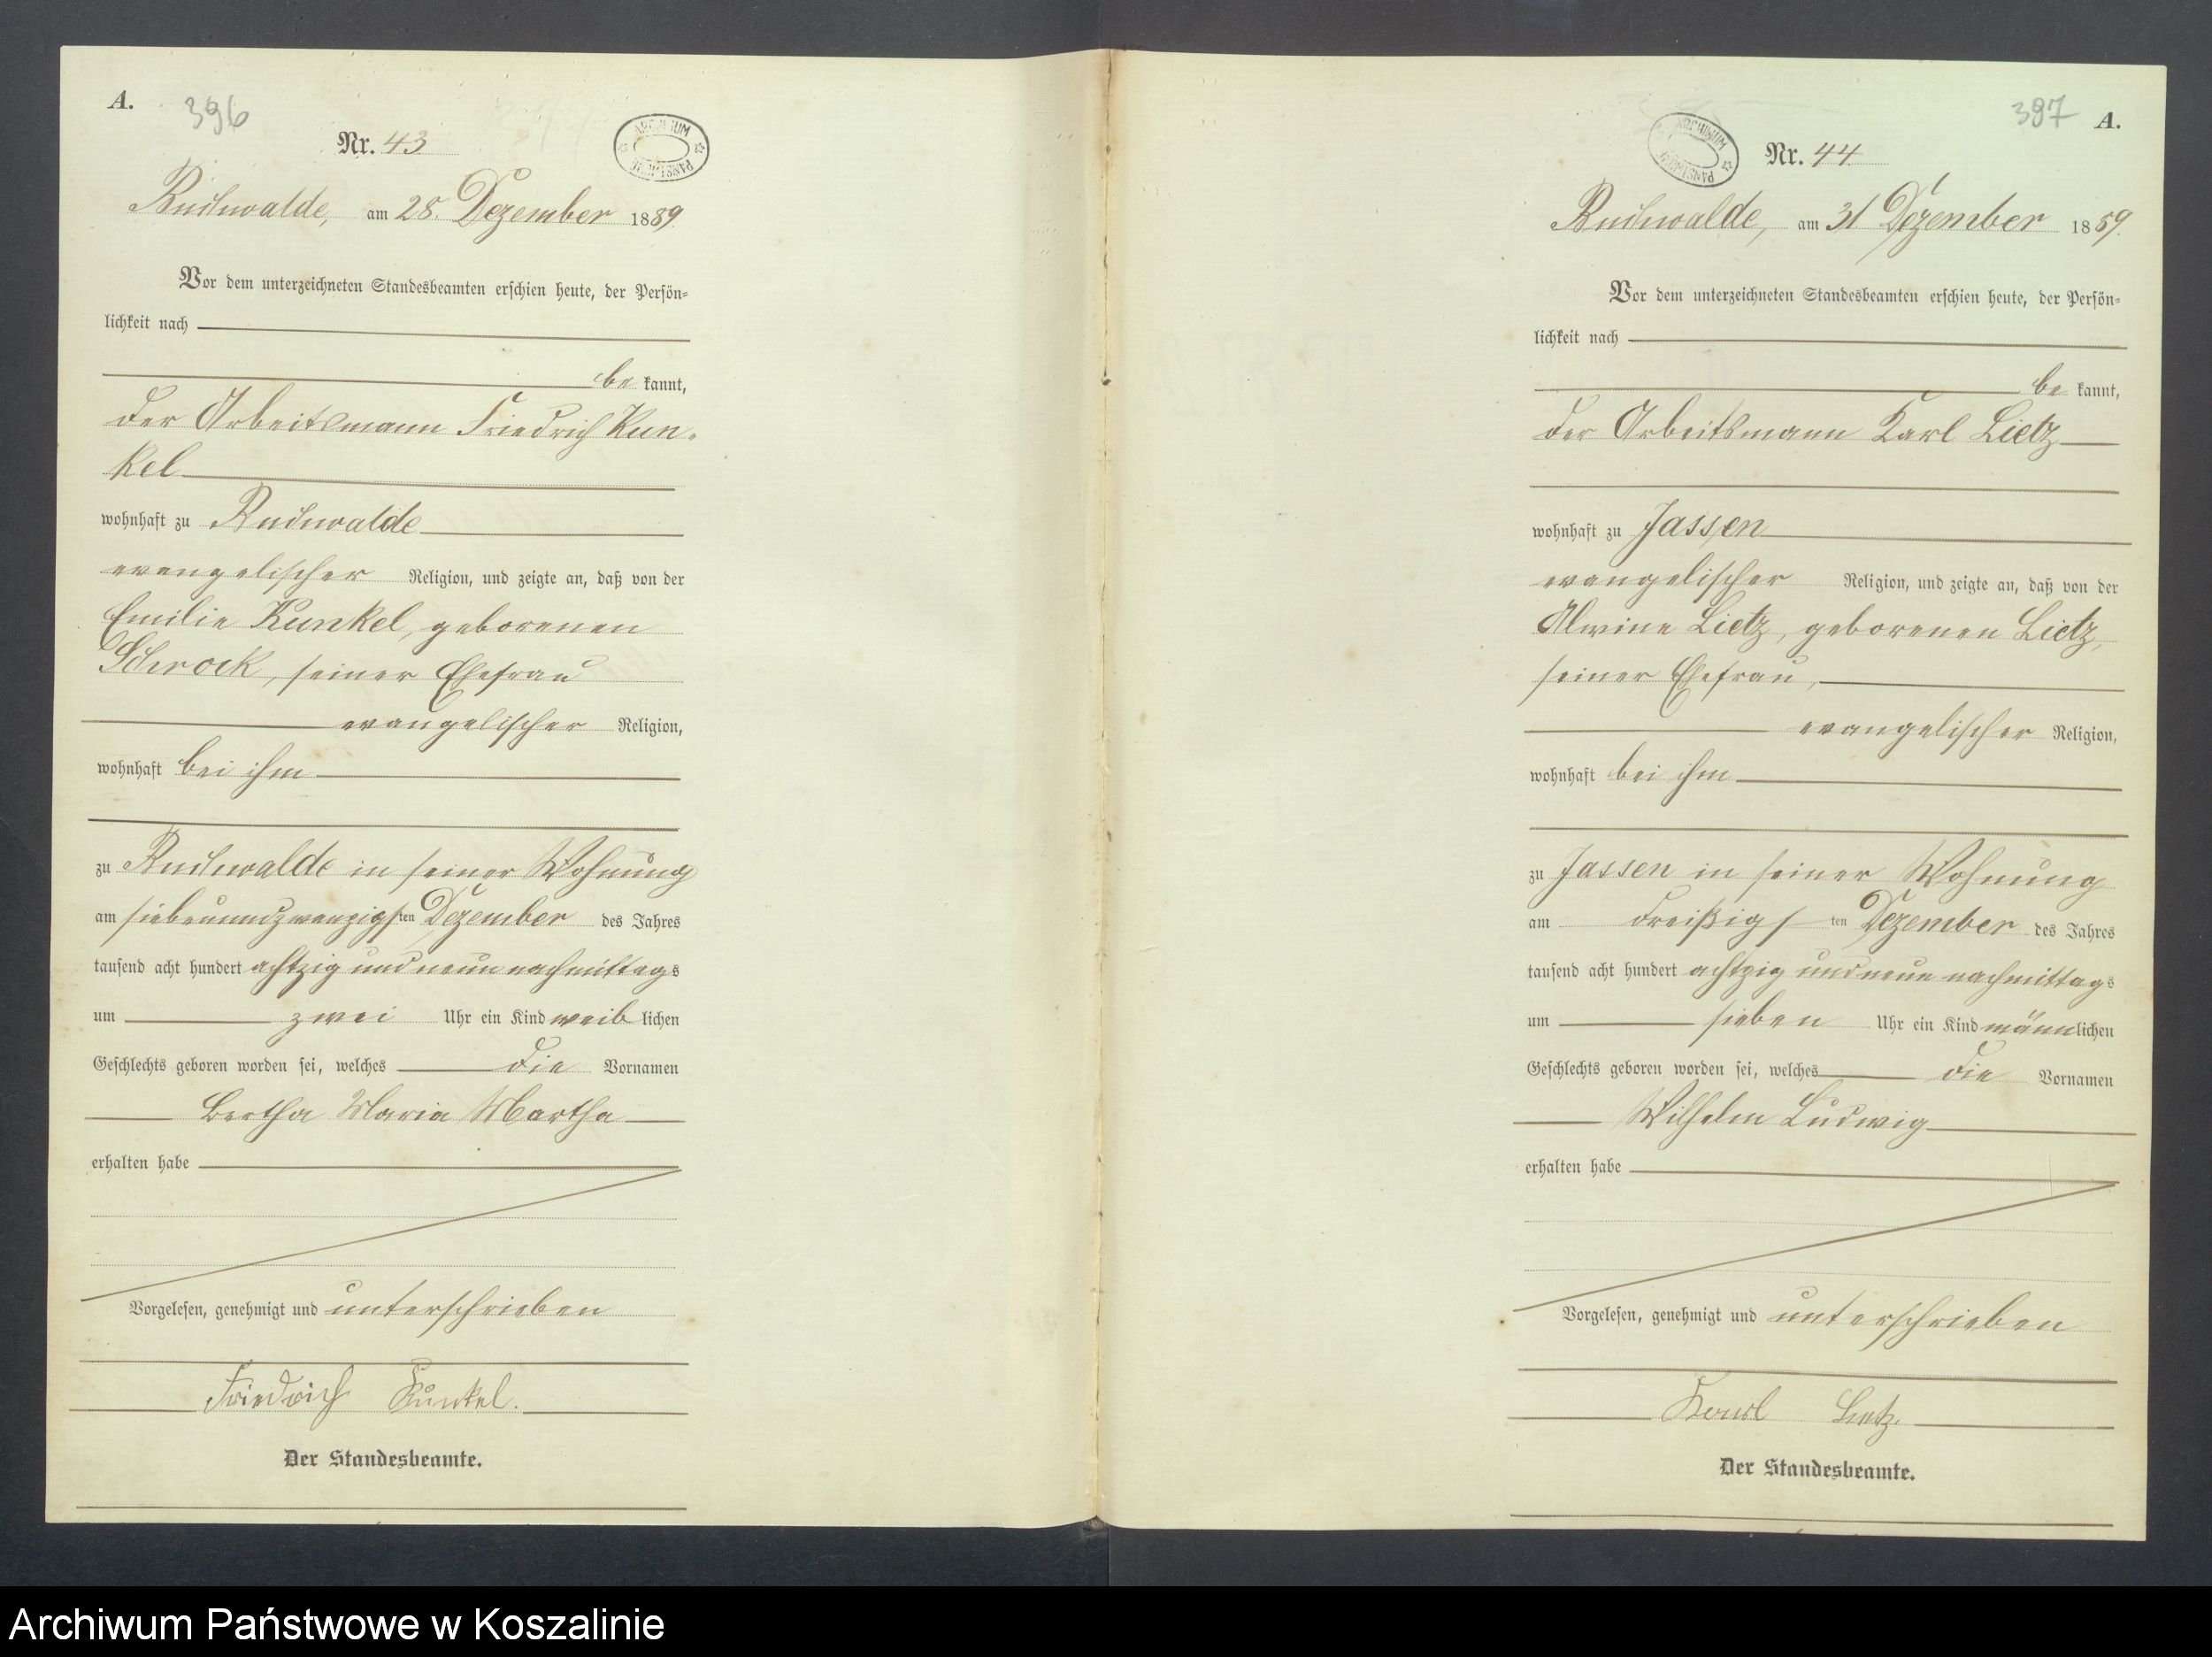 A.
396
Nr. 43
ARCHIWUM PAŃSTWOWE
Buchwalde, am 28. Dezember 1889.
Vor dem unterzeichneten Standesbeamten erschien heute, der Persön-
lichkeit nach
be kannt,
der Arbeitsmann Friedrich Kun-
kel
wohnhaft zu Buchwalde
evangelischer Religion, und zeigte an, daß von der
Emilie Kunkel, geborenen
Schrock, seiner Ehefrau
evangelischer Religion,
wohnhaft bei ihm
zu Buchwalde in seiner Wohnung
am siebenundzwanzigsten Dezember des Jahres
tausend acht hundert achtzig und neun nachmittags
um zwei Uhr ein Kind weiblichen
Geschlechts geboren worden sei, welches die Vornamen
Bertha Maria Martha
erhalten habe
Vorgelesen, genehmigt und unterschrieben
Friedrich Kunkel.
Der Standesbeamte.
397
A.
ARCHIWUM PAŃSTWOWE
Nr. 44
Buchwalde, am 31 Dezember 1889.
Vor dem unterzeichneten Standesbeamten erschien heute, der Persön-
lichkeit nach
be kannt,
der Arbeitsmann Karl Lietz
wohnhaft zu Jassen
evangelischer Religion, und zeigte an, daß von der
Alwine Lietz, geborenen Lietz,
seiner Ehefrau,
evangelischer Religion,
wohnhaft bei ihm
zu Jassen in seiner Wohnung
am dreißigsten Dezember des Jahres
tausend acht hundert achtzig und neun nachmittags
um sieben Uhr ein Kind männlichen
Geschlechts geboren worden sei, welches die Vornamen
Wilhelm Ludwig
erhalten habe
Vorgelesen, genehmigt und unterschrieben
Karl Lietz.
Der Standesbeamte.
Archiwum Państwowe w Koszalinie